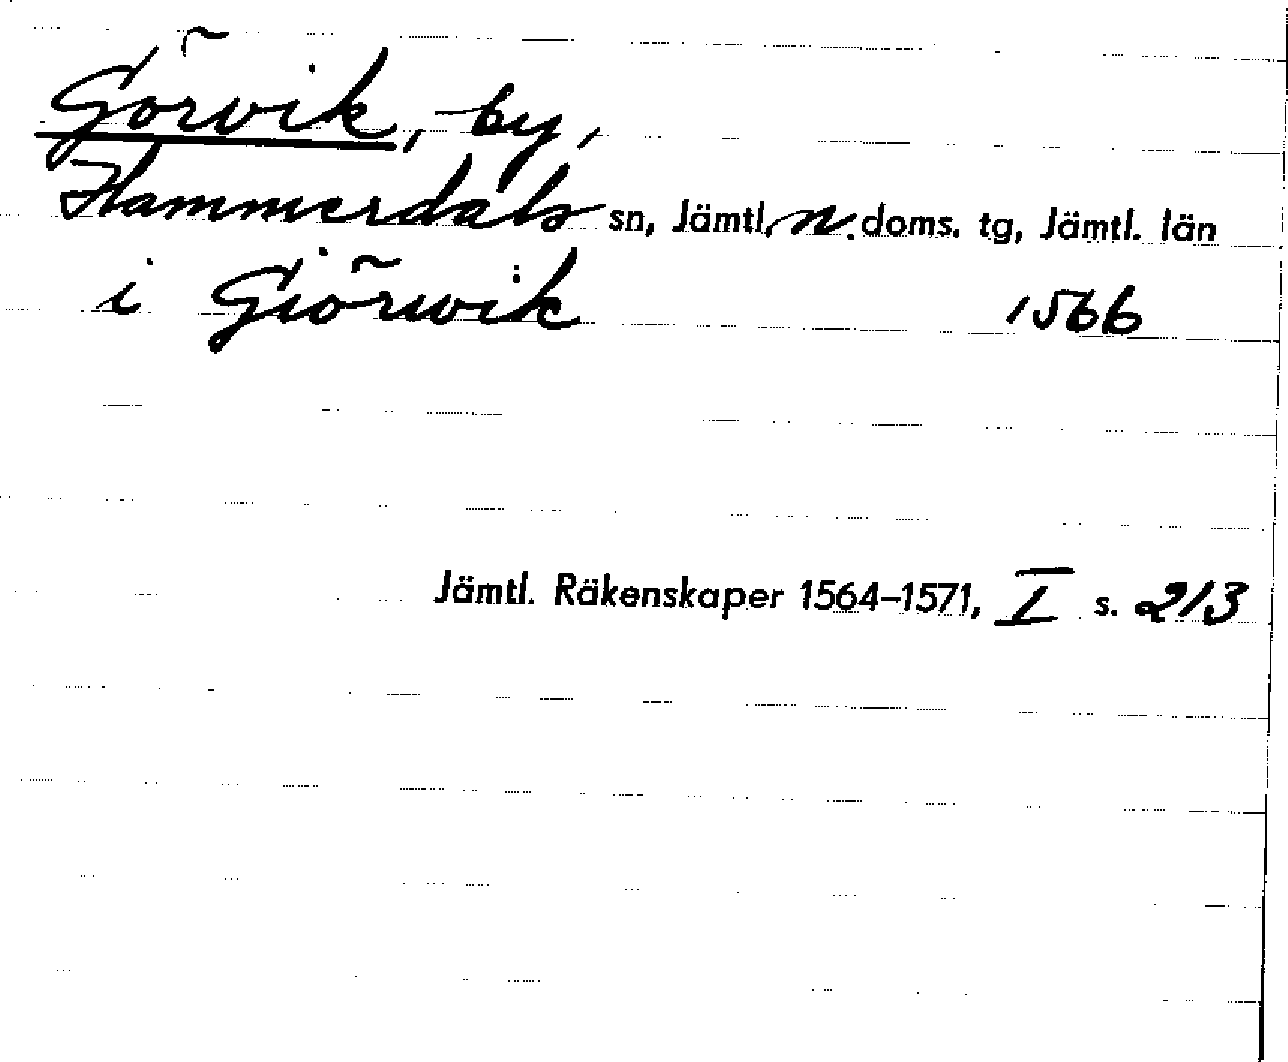 Görvik, by,
Hammerdals sn, Jämtl. n. doms. tg, Jämtl. län
i Giörwik 1566
Jämtl. Räkenskaper 1564–1571, I s. 213